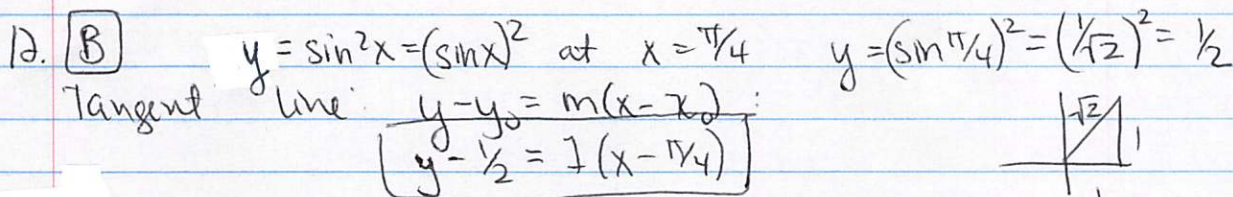 12. B y = sin²x = (sinx)² at x = π/4 y = (sin π/4)² = (1/√2)² = 1/2
Tangent line: y - y₀ = m(x - x₀) :
y - 1/2 = 1(x - π/4)
√2
1
1